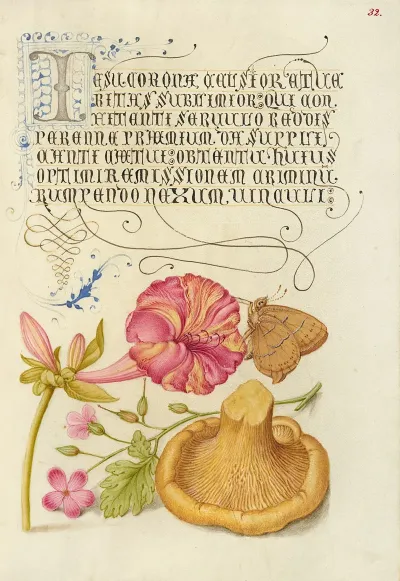 32.
IESU CORONA CELSIOR ET VE
RITAS SUBLIMIOR: QUI CON.
FITENTI SERVULO REDDIS
PERENNE PRÆMIUM. DA SUPPLI
CANTI CÆTUI: OBTENTU HUIUS
OPTIMI REMISSIONEM CRIMINU.
RUMPENDO NEXUM VINCULI: